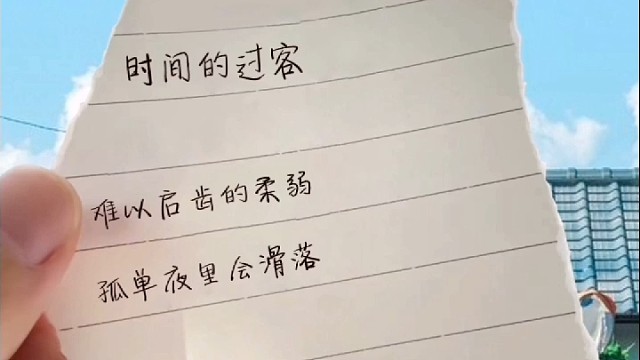 时间的过客
难以启齿的柔弱
孤单夜里会滑落